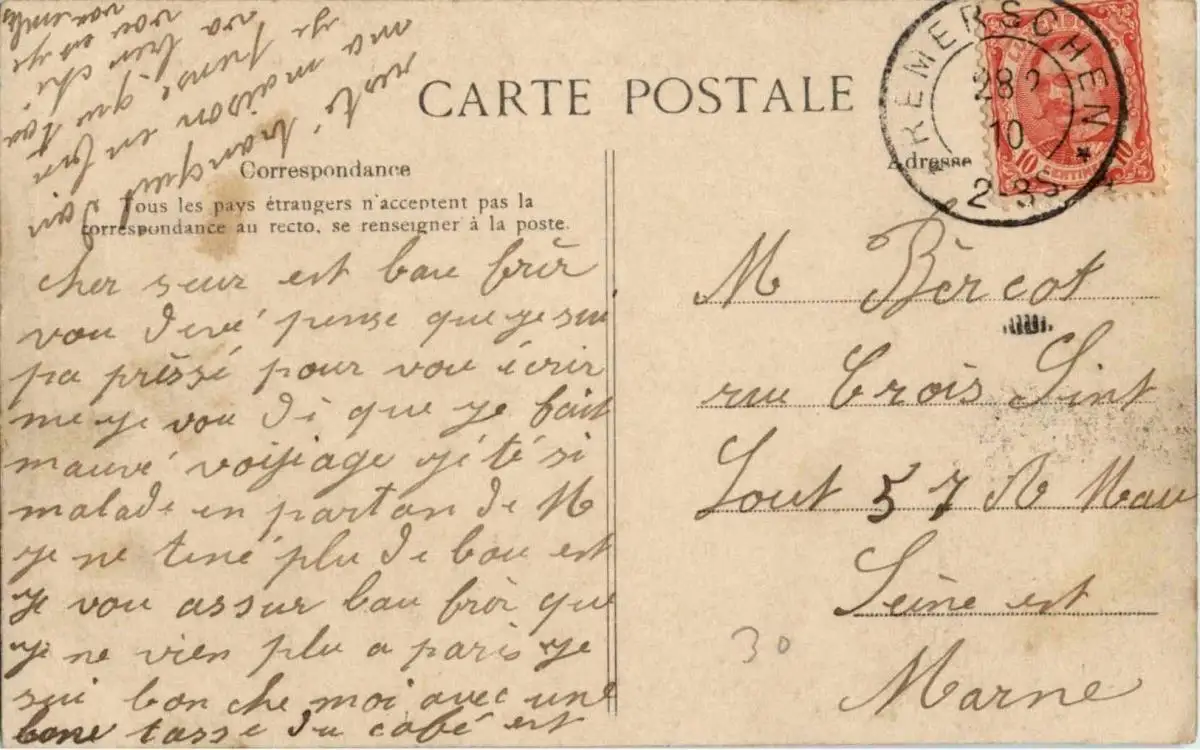 CARTE POSTALE
Correspondance
Tous les pays étrangers n'acceptent pas la
correspondance au recto, se renseigner à la poste.
Adresse
REMERSCHEN
28
10
2-3S
10 CENTIMES 10
cher seur est bau frèr
vou devé pense que je sui
pa prèssé pour vou écrir
me je vou di que je fait
mauvé voijiage jé té si
malade en partan de M
je ne tené plu de bou est
je vou assur bau frèr que
je ne vien plu a paris je
sui bon che moi avec une
bone tasse du café est
resté tranquil dan
ma maison en fin
je pense que toi
va bien ché
vou en je
M Bèrcot
rue Crois Sint
Lout 57 A Mau
Seine est
Marne
30